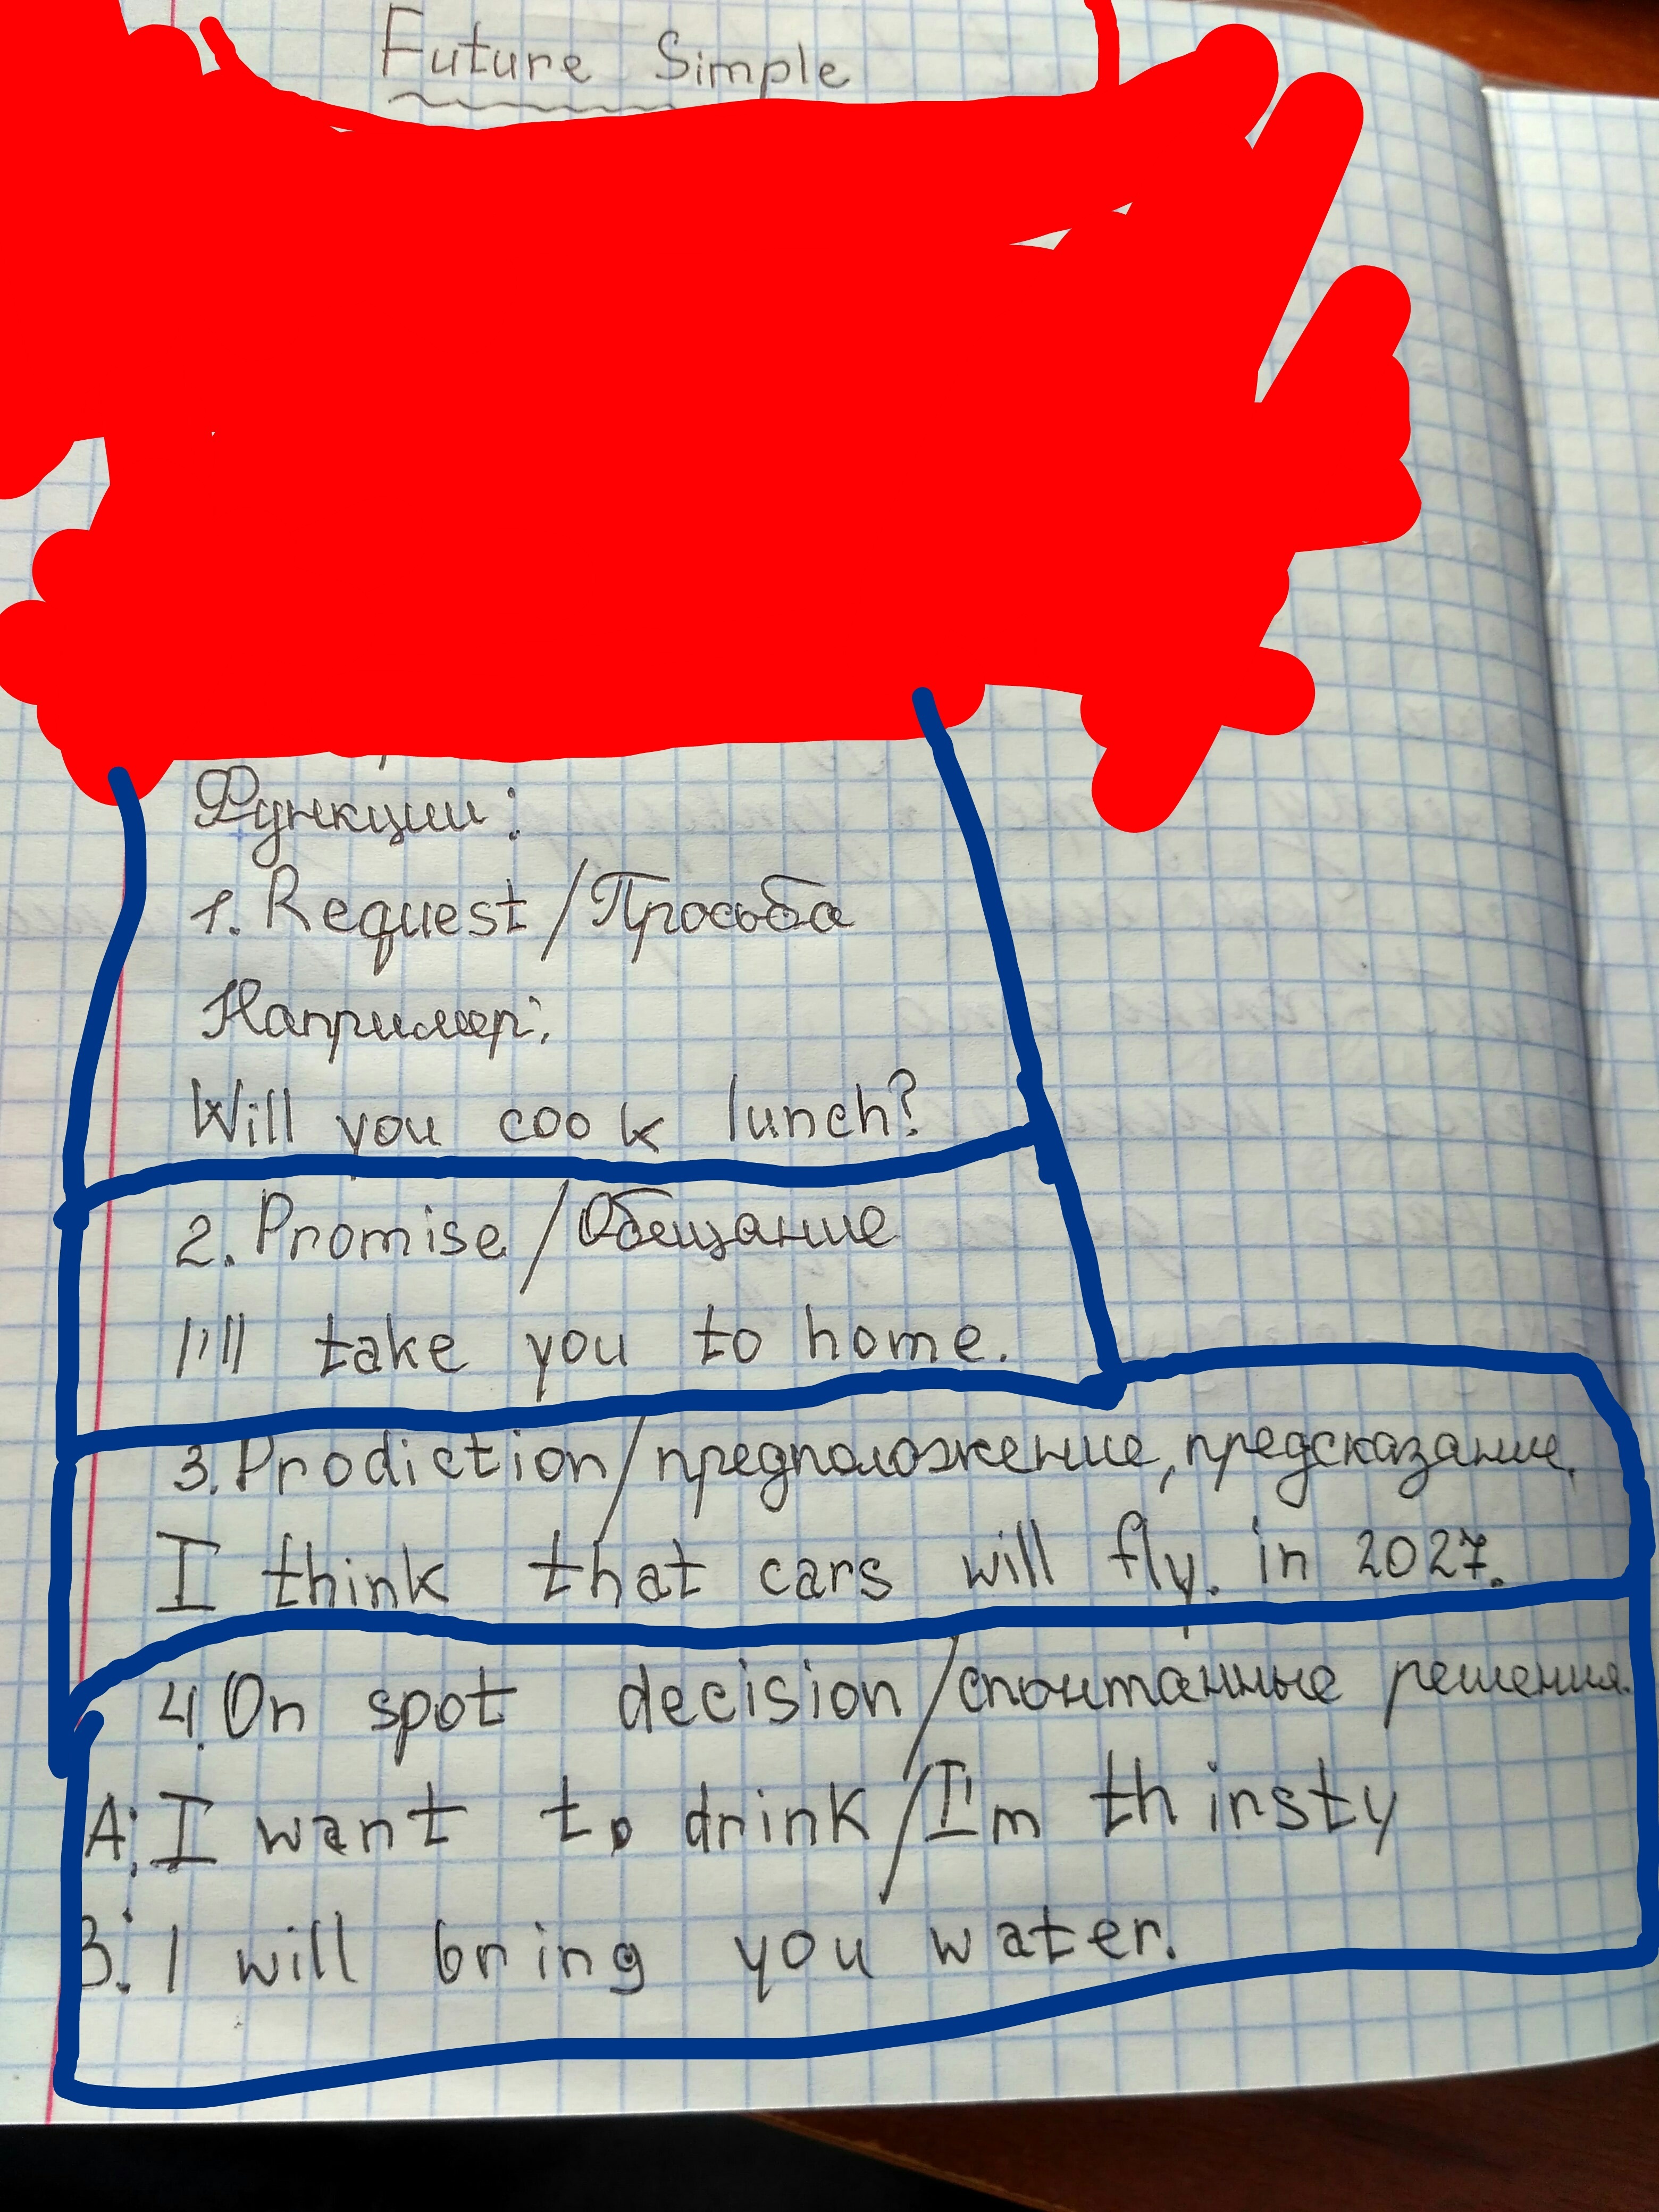 Future Simple
Функции:
1. Request/Просьба
Например:
Will you cook lunch?
2. Promise/Обещание
I'll take you to home.
3. Prodiction/предположение, предсказание.
I think that cars will fly. in 2027.
4. On spot decision/спонтанные решения.
A: I want to drink/I'm thirsty
B: I will bring you water.